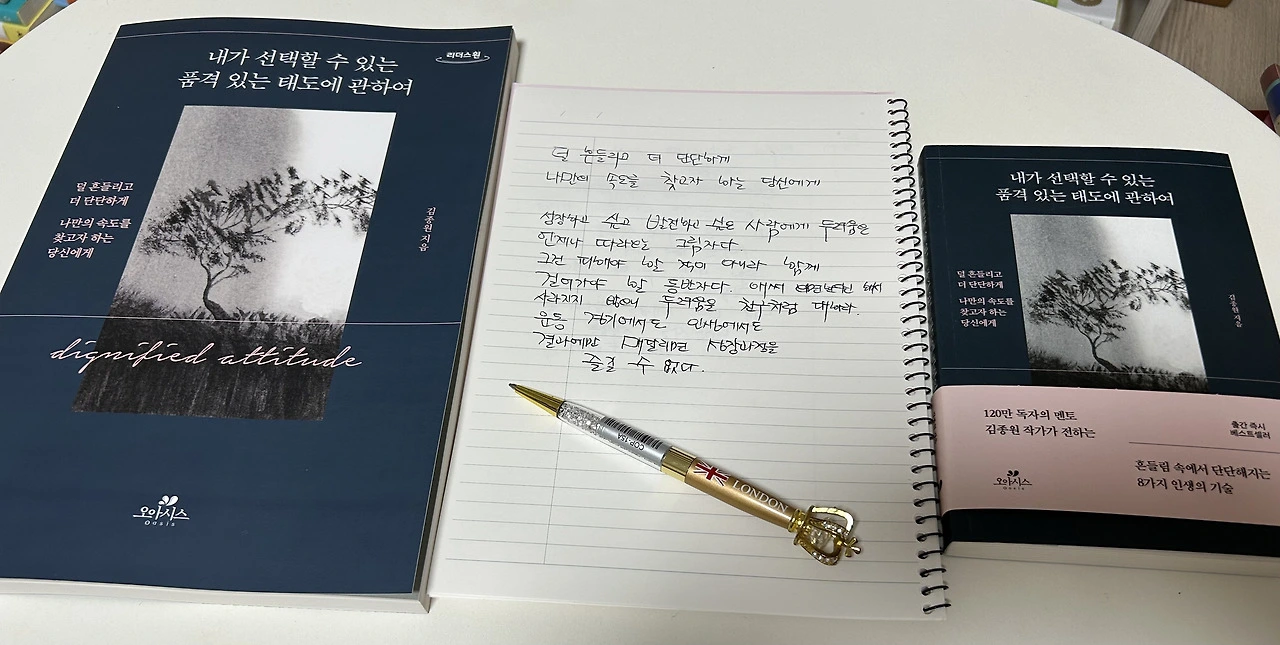 내가 선택할 수 있는
품격 있는 태도에 관하여
리더스원
덜 흔들리고
더 단단하게
나만의 속도를
찾고자 하는
당신에게
김종원 지음
dignified attitude
오아시스
Oasis
덜 흔들리고 더 단단하게
나만의 속도를 찾고자 하는 당신에게
성장하고 싶고 발전하고 싶은 사람에게 두려움은
언제나 따라오는 그림자다.
그건 피해야 할 적이 아니라 함께
걸어가야 할 동반자다. 애써
사라지지 않으니 두려움을 친구처럼 대하라.
운동 경기에서도 인생에서도
결과에만 매달리면 시작과정을
즐길 수 없다.
COP-15A
LONDON
내가 선택할 수 있는
품격 있는 태도에 관하여
덜 흔들리고
더 단단하게
나만의 속도를
찾고자 하는
당신에게
김종원 지음
120만 독자의 멘토
김종원 작가가 전하는
출간 즉시
베스트셀러
흔들림 속에서 단단해지는
8가지 인생의 기술
오아시스
Oasis